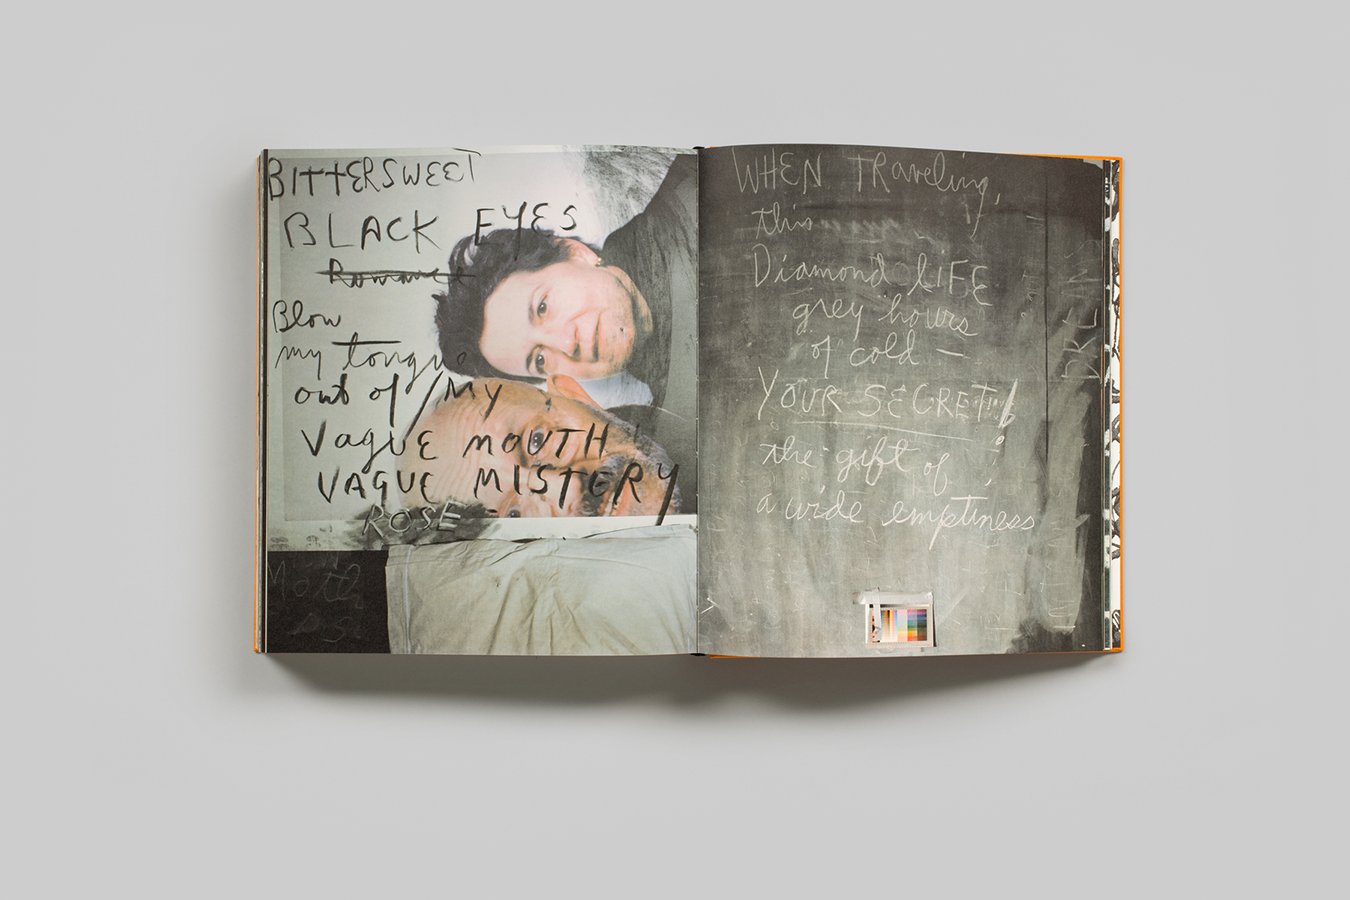 BITTERSWEET
BLACK EYES
Romance
Blow
my tongue
out of / My
VagUE MOUTH
VAGUE MISTERY
ROSE -
WHEN TRaveling,
this
Diamond LIFE
grey hours
of cold —
YOUR SECRET!
the gift of
a wide emptiness